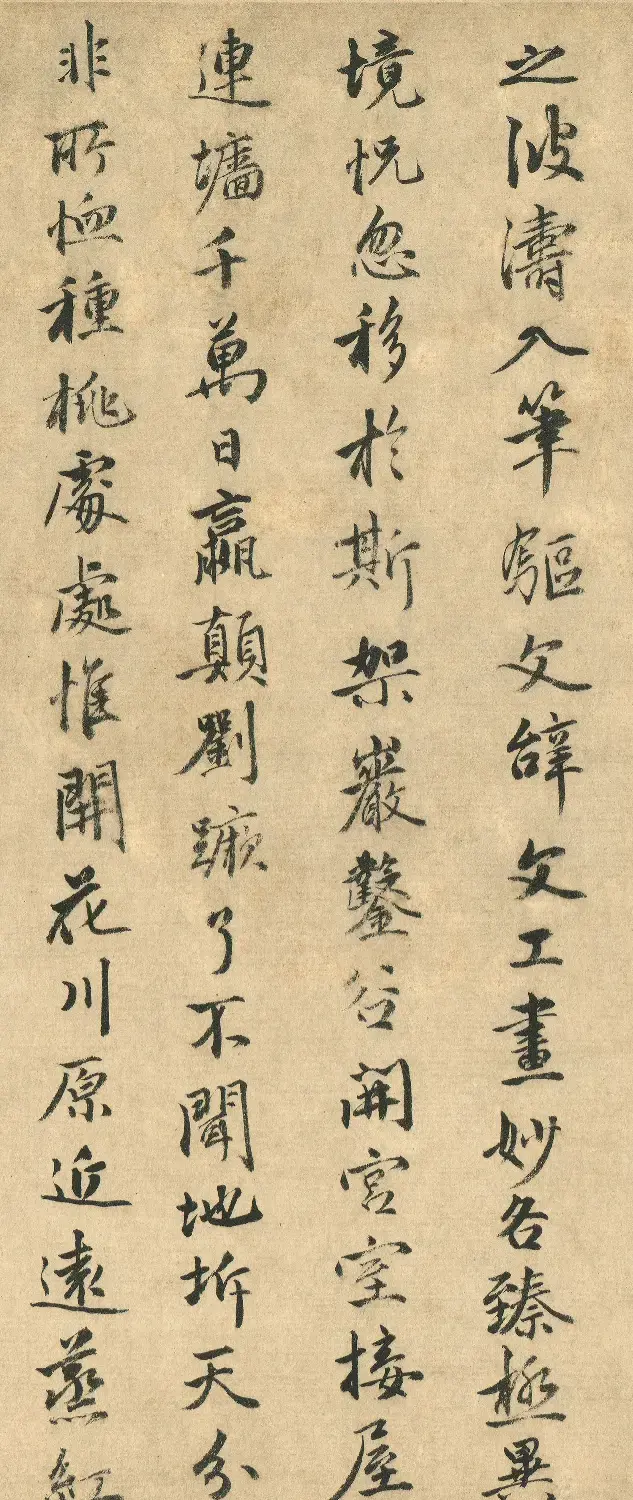 之波濤入筆驅文辭文工畫妙各臻極異
境怳忽移於斯架巖鑿谷開宮室接屋
連墻千萬日嬴顛劉蹶了不聞地坼天分
非所恤種桃處處惟開花川原近遠蒸紅